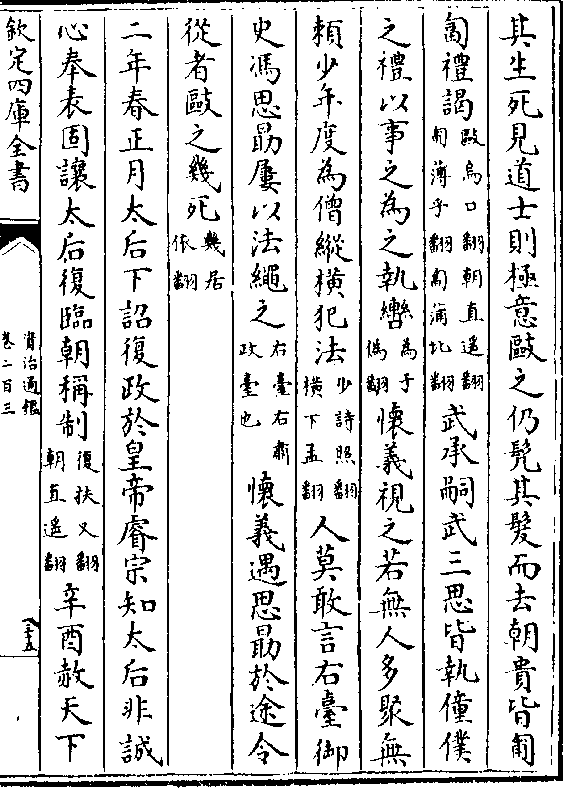 其生死見道士則極意毆之仍髡其髮而去朝貴皆匍
匐禮謁毆烏口翻朝直遥翻匍薄乎翻匐蒲北翻武承嗣武三思皆執僮僕
之禮以事之為之執轡為于偽翻懷義視之若無人多聚無
賴少年度為僧縱橫犯法少詩照翻橫下孟翻人莫敢言右臺御
史馮思勗屢以法繩之右臺右肅政臺也懷義遇思勗於途令
從者毆之幾死幾居依翻
二年春正月太后下詔復政於皇帝睿宗知太后非誠
心奉表固讓太后復臨朝稱制復扶又翻朝直遥翻辛酉赦天下
欽定四庫全書
資治通鑑
卷二百三